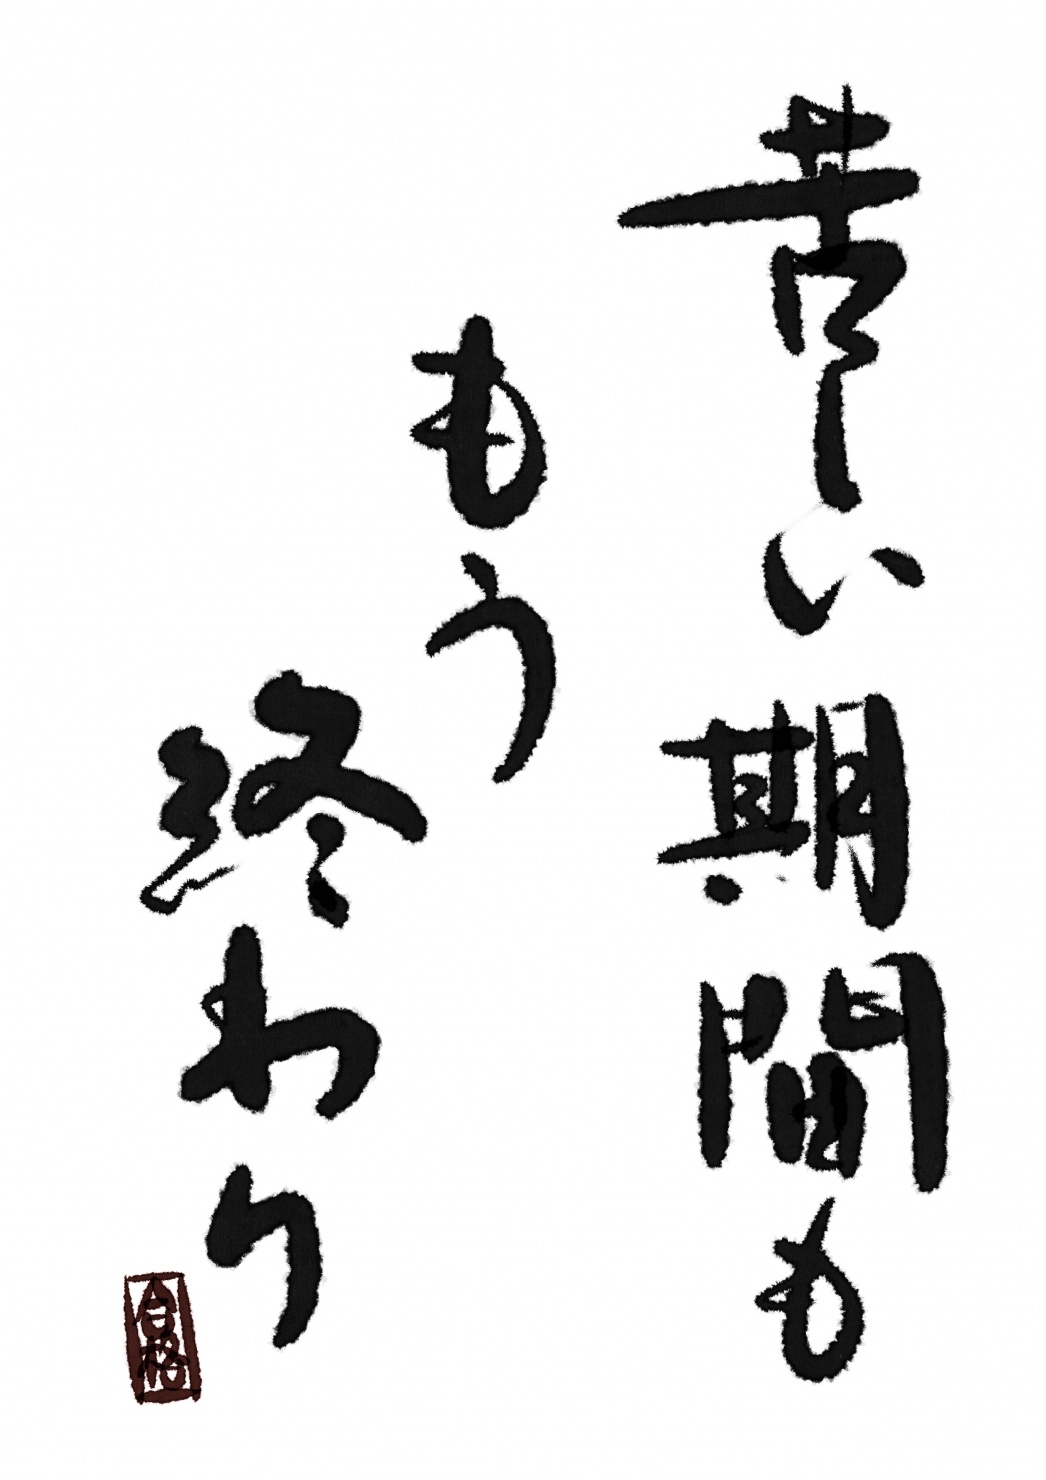 苦しい期間も
もう
終わり
合格